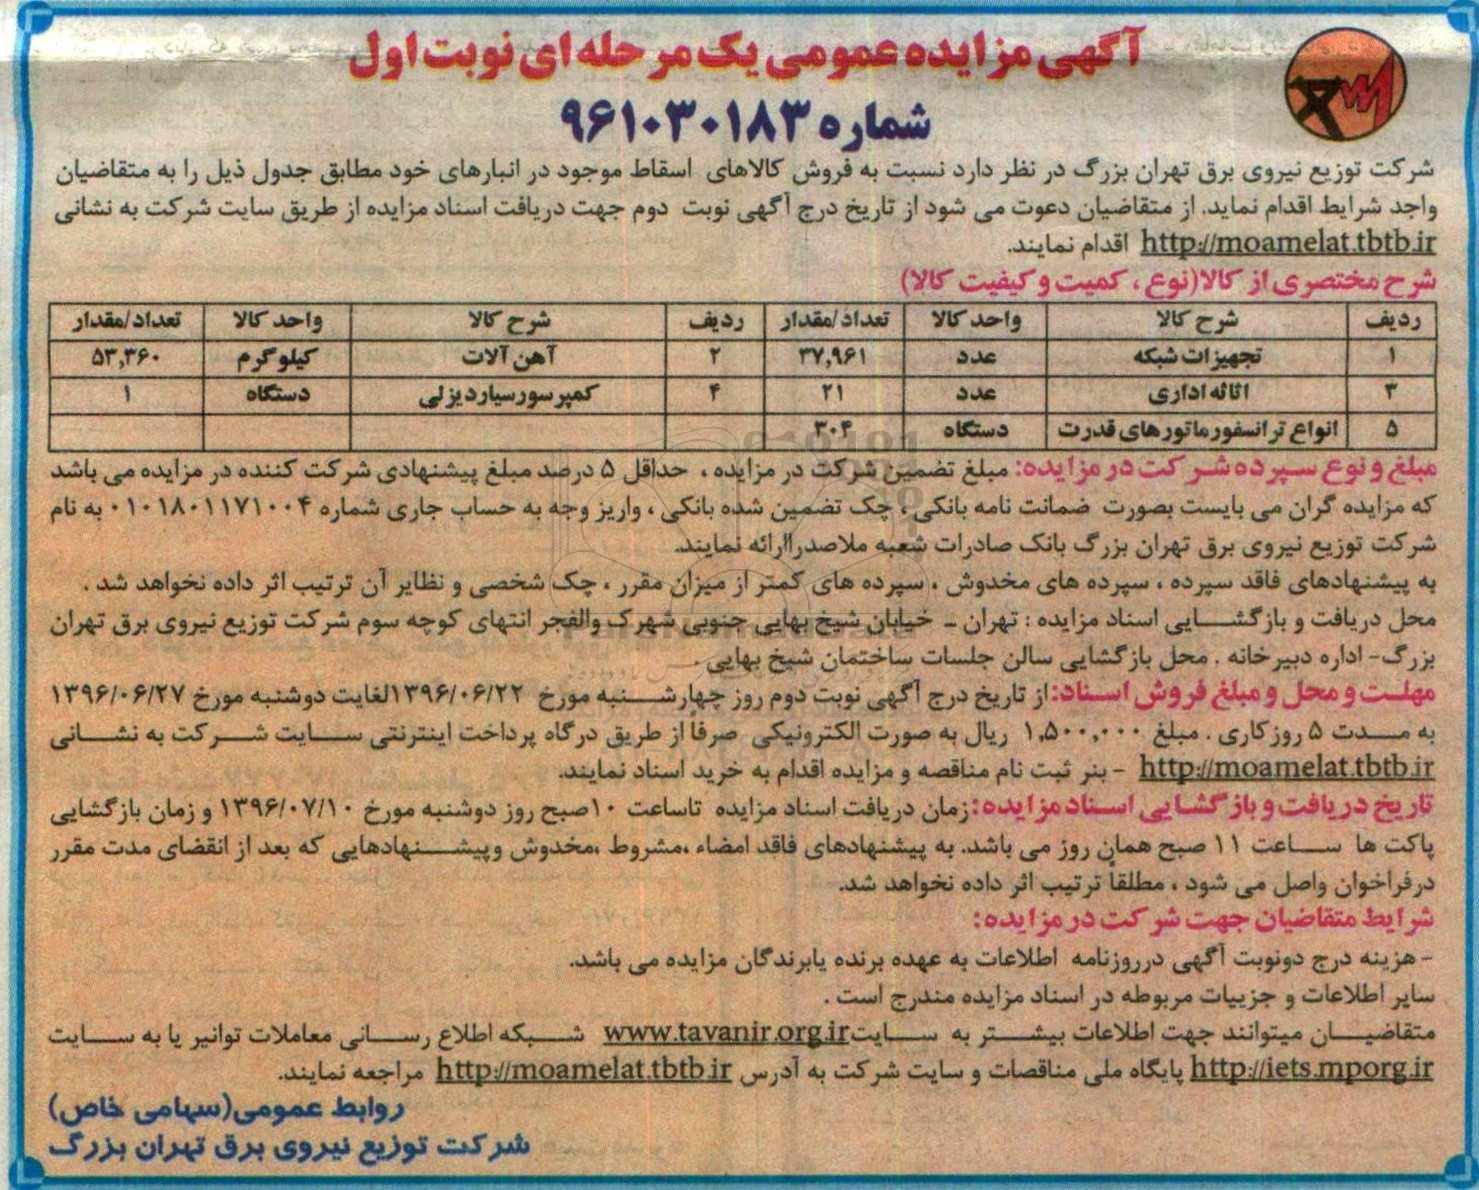 آگهی مزایده عمومی یک مرحله ای نوبت اول
شماره ۹۶۱۰۳۰۱۸۳
شرکت توزیع نیروی برق تهران بزرگ در نظر دارد نسبت به فروش کالاهای اسقاط موجود در انبارهای خود مطابق جدول ذیل را به متقاضیان
واجد شرایط اقدام نماید. از متقاضیان دعوت می شود از تاریخ درج آگهی نوبت دوم جهت دریافت اسناد مزایده از طریق سایت شرکت به نشانی
http://moamelat.tbtb.ir اقدام نمایند.
شرح مختصری از کالا(نوع ، کمیت و کیفیت کالا)
ردیف شرح کالا واحد کالا تعداد/مقدار ردیف شرح کالا واحد کالا تعداد/مقدار
۱ تجهیزات شبکه عدد ۳۷,۹۶۱ ۲ آهن آلات کیلوگرم ۵۳,۳۶۰
۳ اثاثه اداری عدد ۲۱ ۴ کمپرسور سیار دیزلی دستگاه ۱
۵ انواع ترانسفورماتورهای قدرت دستگاه ۳۰۴
مبلغ و نوع سپرده شرکت در مزایده: مبلغ تضمین شرکت در مزایده ، حداقل ۵ درصد مبلغ پیشنهادی شرکت کننده در مزایده می باشد
که مزایده گران می بایست بصورت ضمانت نامه بانکی ، چک تضمین شده بانکی ، واریز وجه به حساب جاری شماره ۰۱۰۱۸۰۱۱۷۱۰۰۴ به نام
شرکت توزیع نیروی برق تهران بزرگ بانک صادرات شعبه ملاصدرا ارائه نمایند.
به پیشنهادهای فاقد سپرده ، سپرده های مخدوش ، سپرده های کمتر از میزان مقرر ، چک شخصی و نظایر آن ترتیب اثر داده نخواهد شد .
محل دریافت و بازگشایی اسناد مزایده : تهران – خیابان شیخ بهایی جنوبی شهرک والفجر انتهای کوچه سوم شرکت توزیع نیروی برق تهران
بزرگ- اداره دبیرخانه . محل بازگشایی سالن جلسات ساختمان شیخ بهایی .
مهلت و محل و مبلغ فروش اسناد: از تاریخ درج آگهی نوبت دوم روز چهارشنبه مورخ ۱۳۹۶/۰۶/۲۲ لغایت دوشنبه مورخ ۱۳۹۶/۰۶/۲۷
به مدت ۵ روز کاری . مبلغ ۱,۵۰۰,۰۰۰ ریال به صورت الکترونیکی صرفاً از طریق درگاه پرداخت اینترنتی سایت شرکت به نشانی
http://moamelat.tbtb.ir - بنر ثبت نام مناقصه و مزایده اقدام به خرید اسناد نمایند.
تاریخ دریافت و بازگشایی اسناد مزایده: زمان دریافت اسناد مزایده تاساعت ۱۰صبح روز دوشنبه مورخ ۱۳۹۶/۰۷/۱۰ و زمان بازگشایی
پاکت ها ساعت ۱۱ صبح همان روز می باشد. به پیشنهادهای فاقد امضاء ،مشروط ،مخدوش وپیشنهادهایی که بعد از انقضای مدت مقرر
درفراخوان واصل می شود ، مطلقاً ترتیب اثر داده نخواهد شد.
شرایط متقاضیان جهت شرکت در مزایده:
- هزینه درج دونوبت آگهی درروزنامه اطلاعات به عهده برنده یابرندگان مزایده می باشد.
سایر اطلاعات و جزییات مربوطه در اسناد مزایده مندرج است .
متقاضیان میتوانند جهت اطلاعات بیشتر به سایت www.tavanir.org.ir شبکه اطلاع رسانی معاملات توانیر یا به سایت
http://iets.mporg.ir پایگاه ملی مناقصات و سایت شرکت به آدرس http://moamelat.tbtb.ir مراجعه نمایند.
روابط عمومی(سهامی خاص)
شرکت توزیع نیروی برق تهران بزرگ